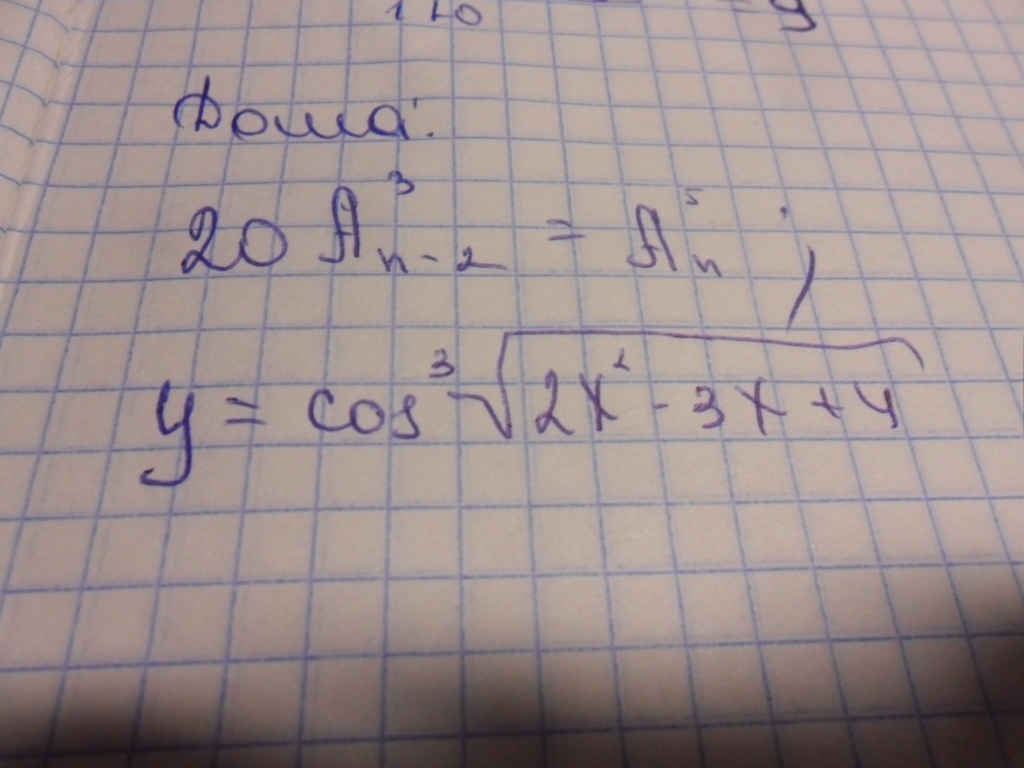 Дома:
20 A³ₙ₋₂ = A⁵ₙ ;
y = cos ³√(2x² - 3x + 4)